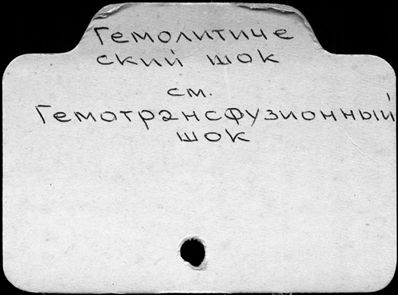 Гемолитиче
ский шок
см.
Гемотрансфузионный
шок